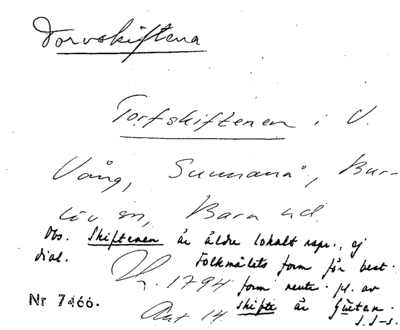 Torvskiftena
Torfskiftenen i V.
Vång, Sunnanå, Bur-
löv sn, Bara hd
Obs. Skiftenen är äldre lokalt repr., ej
dial. Folkmålets form för best.
K. 1794 form neutr. pl. av
Akt 14. skifte är
Nr 7466. S.J-s.